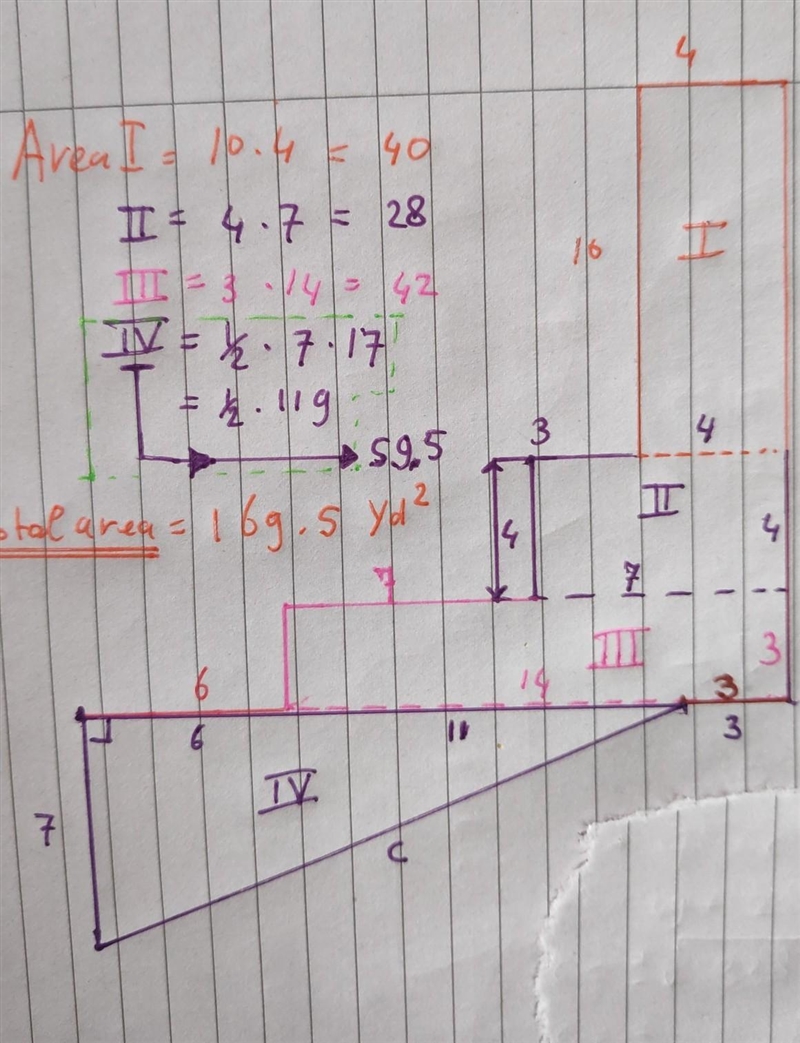 4
Area I = 10.4 = 40
II = 4.7 = 28
III = 3.14 = 42
IV = ½.7.17
= ½.119
59.5
Total area = 169.5 yd²
10
I
3
4
4
II
4
7
7
III
3
6
14
3
6
11
3
IV
7
C